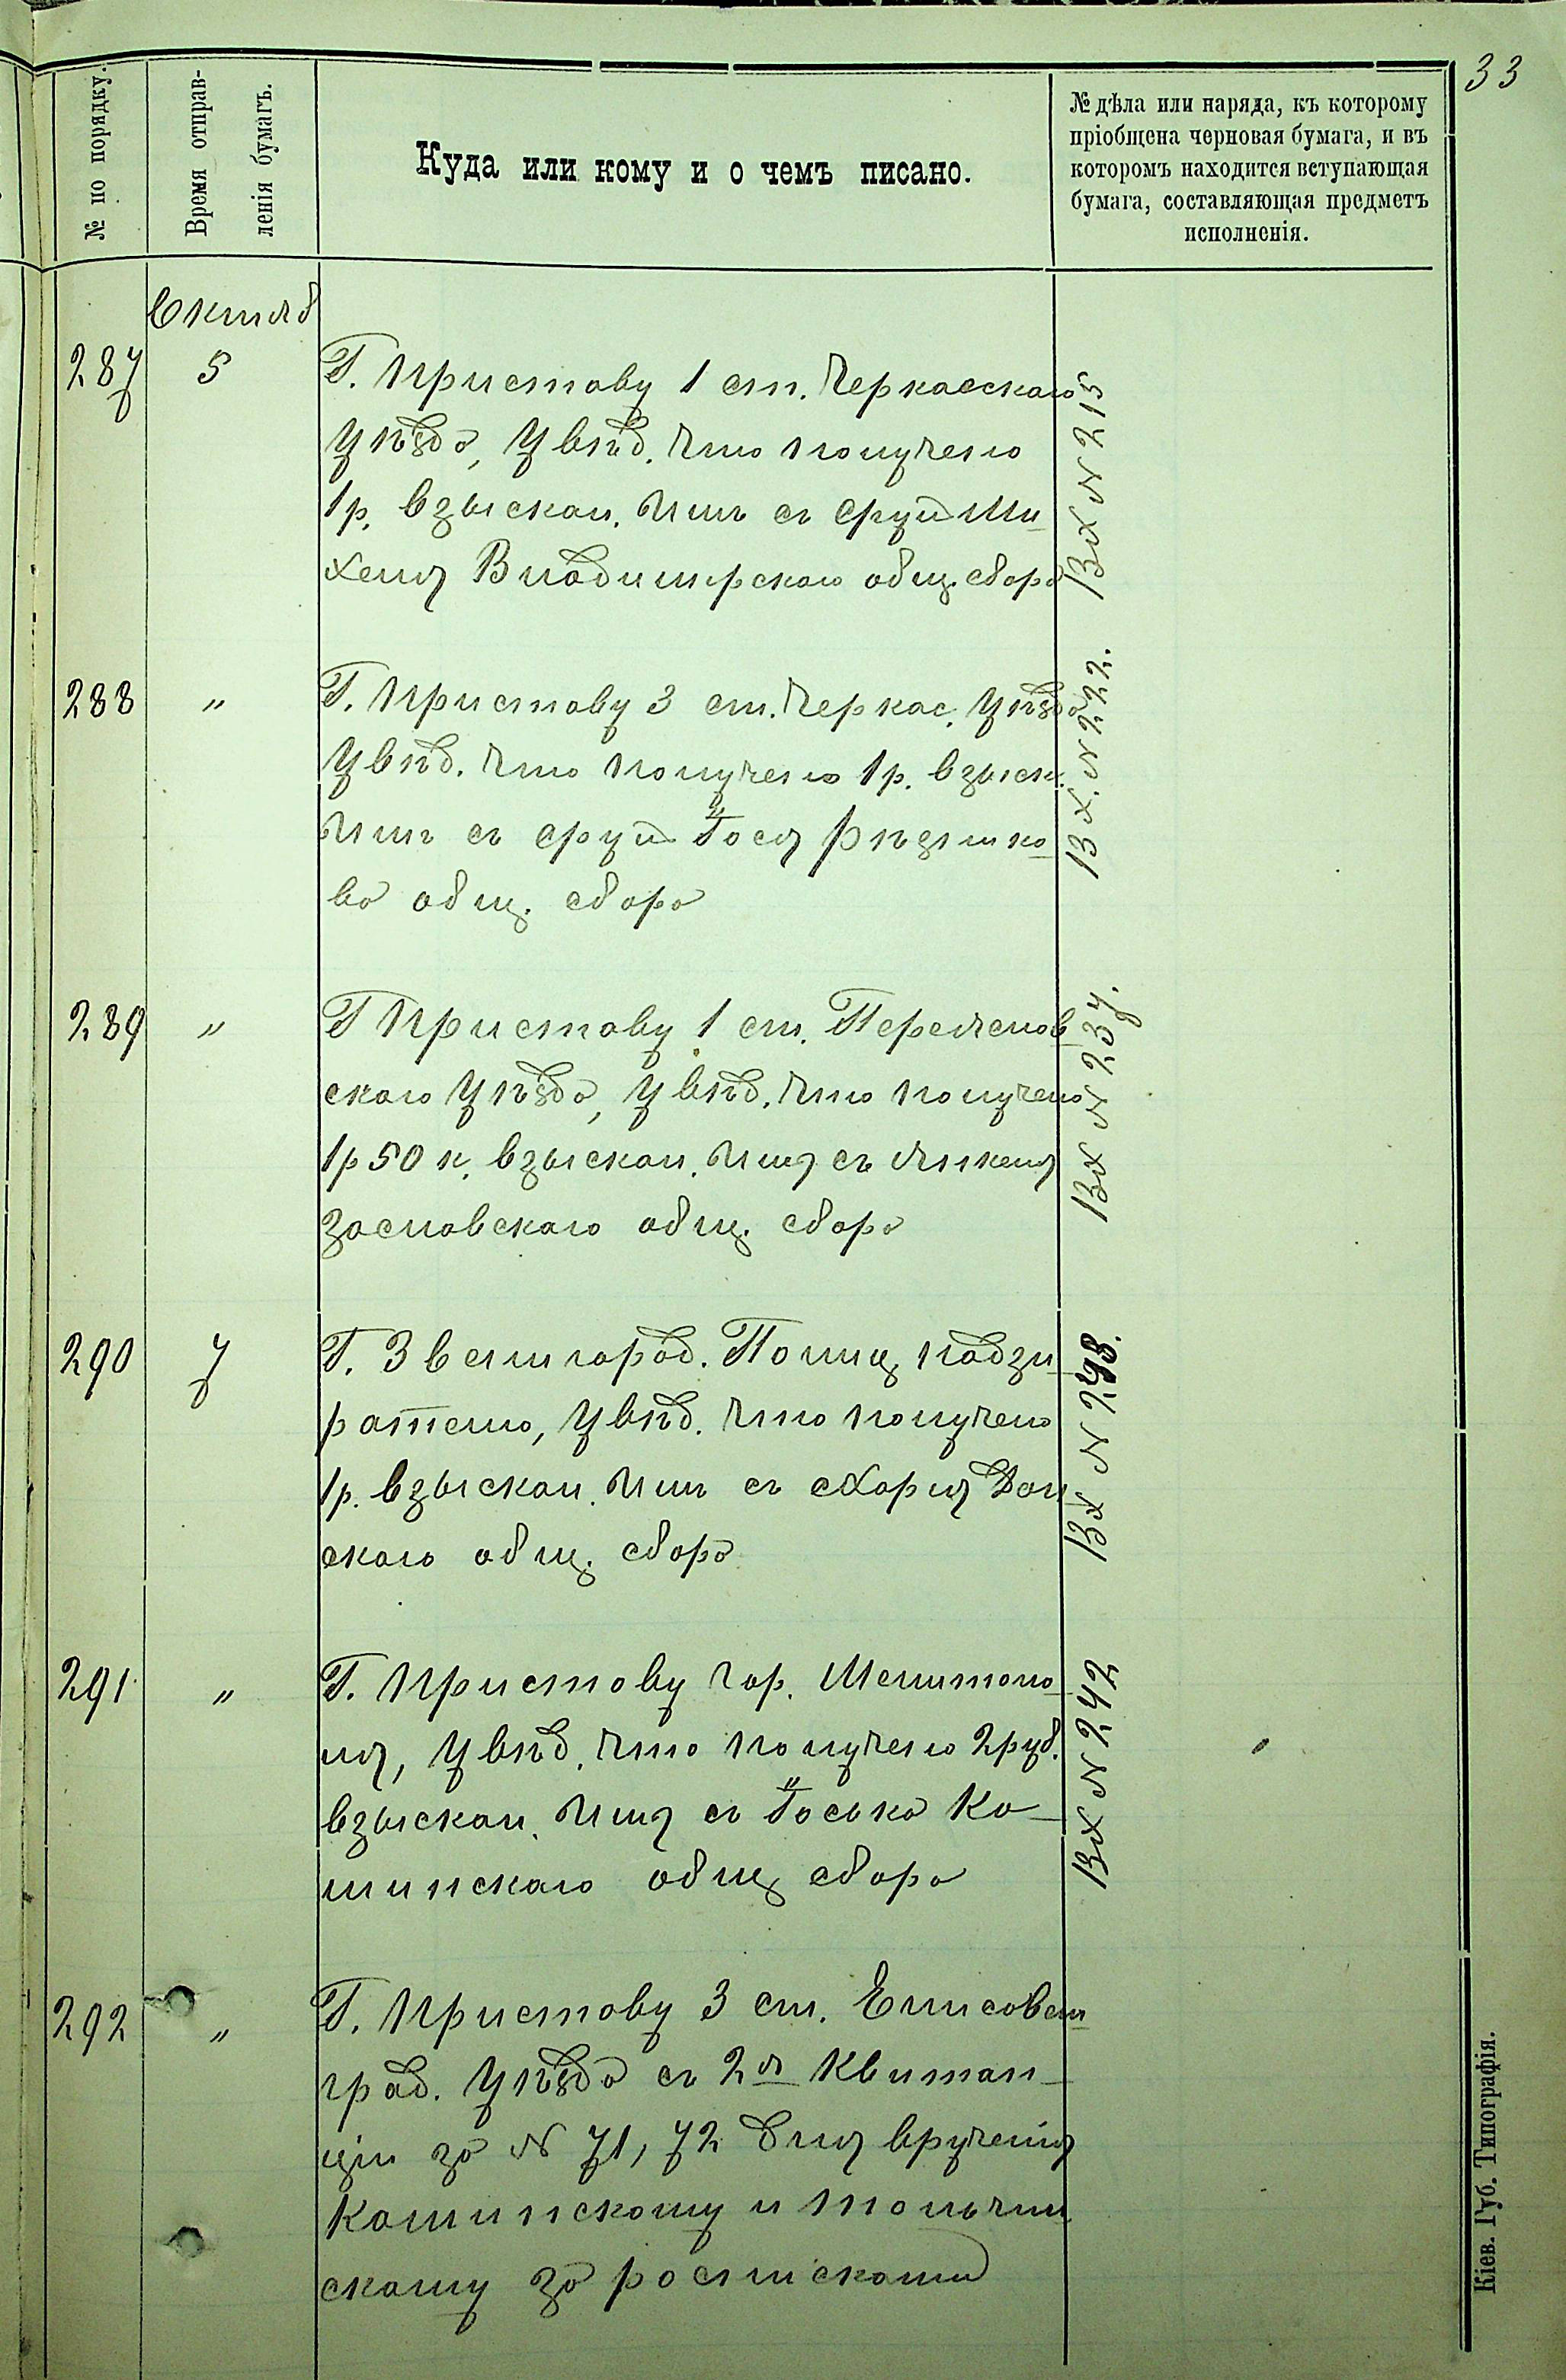 33
№ по порядку.
Время отправ-
ленія бумагъ.
Куда или кому и о чемъ писано.
№ дѣла или наряда, къ которому
пріобщена черновая бумага, и въ
которомъ находится вступающая
бумага, составляющая предметъ
исполненія.
Октяб
287 5 Г. Приставу 1 ст. Черкасскаго
уѣзда, увѣд. что получено
1 р. взыскан. Имъ съ Сруля Ми-
хеля Владимирскаго общ. сбора
Вх N 215
288 " Г. Приставу 3 ст. Черкас. уѣзда
увѣд. что получено 1 р. взыск.
Имъ съ Сруля Госа
ва общ. сбора
Вх. N 222.
289 " Г Приставу 1 ст. Переяслов
скаго уѣзда, увѣд. что получено
1 р 50 к. взыскан. Имъ съ
Заславскаго общ. сбора
Вх N 237.
290 7 Г. Звенигород. Полиц. надзи
рателю, увѣд. что получено
1 р. взыскан. Имъ съ Дан
скаго общ. сбора
Вх N
291 " Г. Приставу гор. Мелитопо-
ля, увѣд. что получено 2 руб.
взыскан. Имъ съ Госька Ка-
минскаго общ сбора
Вх N 242
292 " Г. Приставу 3 ст. Елисавет
град. уѣзда съ 2 я Квитан-
ціи за N 71, 72 для врученія
Каминскому и Тольчин
скому за росписками
Кіев. Губ. Типографія.